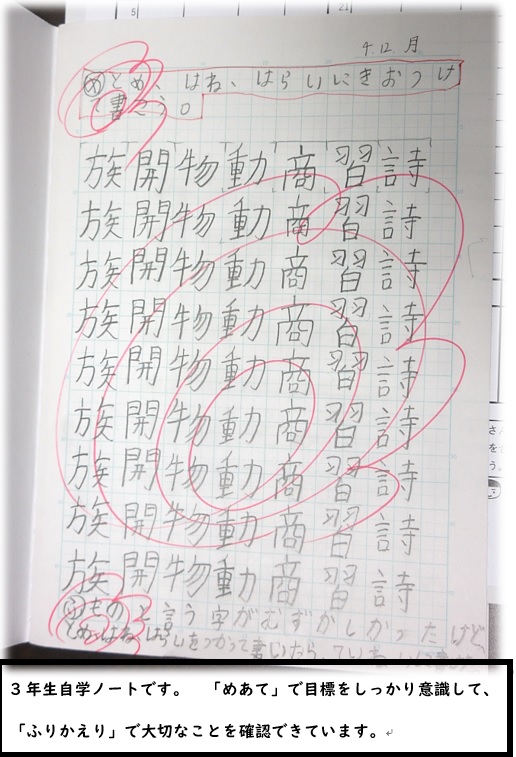 4.12 月
めとめ、はね、はらいにきおつけ
て書こう。
族開物動商習詩
族開物動商習詩
族開物動商習詩
族開物動商習詩
族開物動商習詩
族開物動商習詩
族開物動商習詩
族開物動商習詩
族開物動商習詩
ふものと言う字がむずかしかったけど、
とめ、はね、はらいをつかって書いたら
3年生自学ノートです。　「めあて」で目標をしっかり意識して、
「ふりかえり」で大切なことを確認できています。